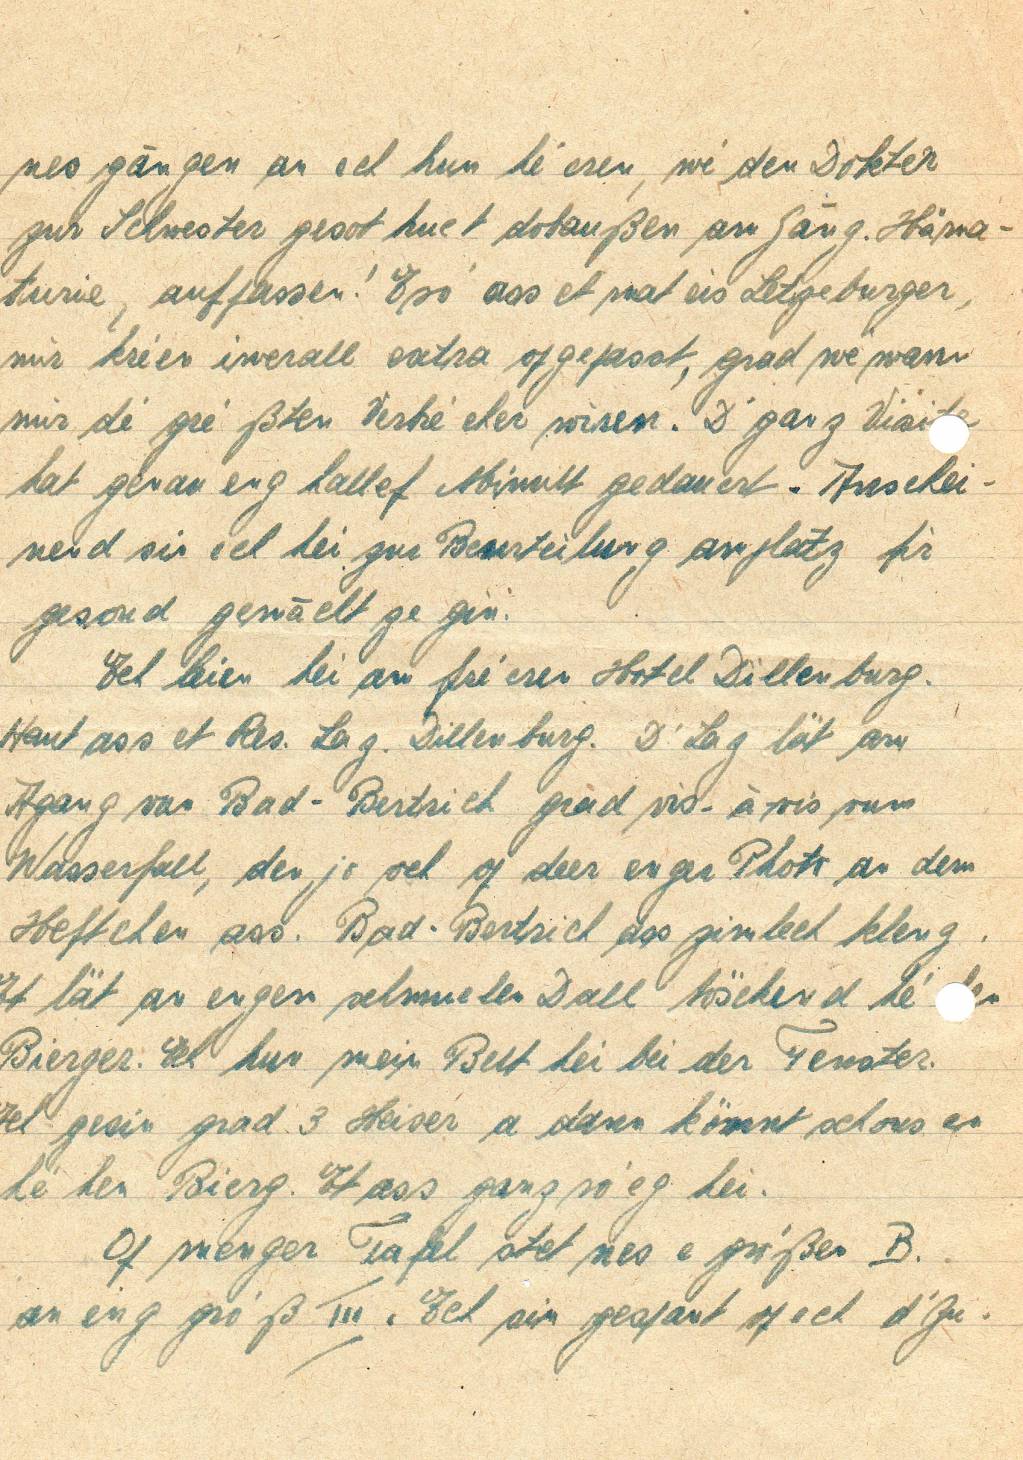 nes gängen an ech hun hé eren, wé den Dokter
zur Schwester gesot huet dobaußen am Gäng. Häma-
turie, auffassen! Eso' ass et mat eis Letzeburger,
mir kréien iwerall extra ofgefasst, grad wé wann
mir dé gré ßten Verbré cher wiren. D'ganz Visite
hat genau eng hallef Minutt gedauert. Anschei-
nend sin ech hei zur Beurteilung amplatz fir
gesond gemächt ze gin.
Ech leien hei am fré eren Hotel Dillenburg.
Haut ass et Res. Laz. Dillenburg. D'Laz lät am
Agang van Bad-Bertrich gräd vis-à-vis vum
Wasserfall, den jo och of deer enger Photo an dem
Heftchen ass. Bad-Bertrich ass zimlech kleng.
Et lät an engem schmuelen Dall töschend hé hen
Bierger. Ech hun mein Bett hei bei der Fenster.
Ech gesin grad 3 Heiser a dann kömmt schons en
hé hen Bierg. Et ass ganz ro'eg hei.
Of menger Tafel stet nes e gro'ßen B.
an eng gro' ß III. Ech sin gespant of ech d'Ju.